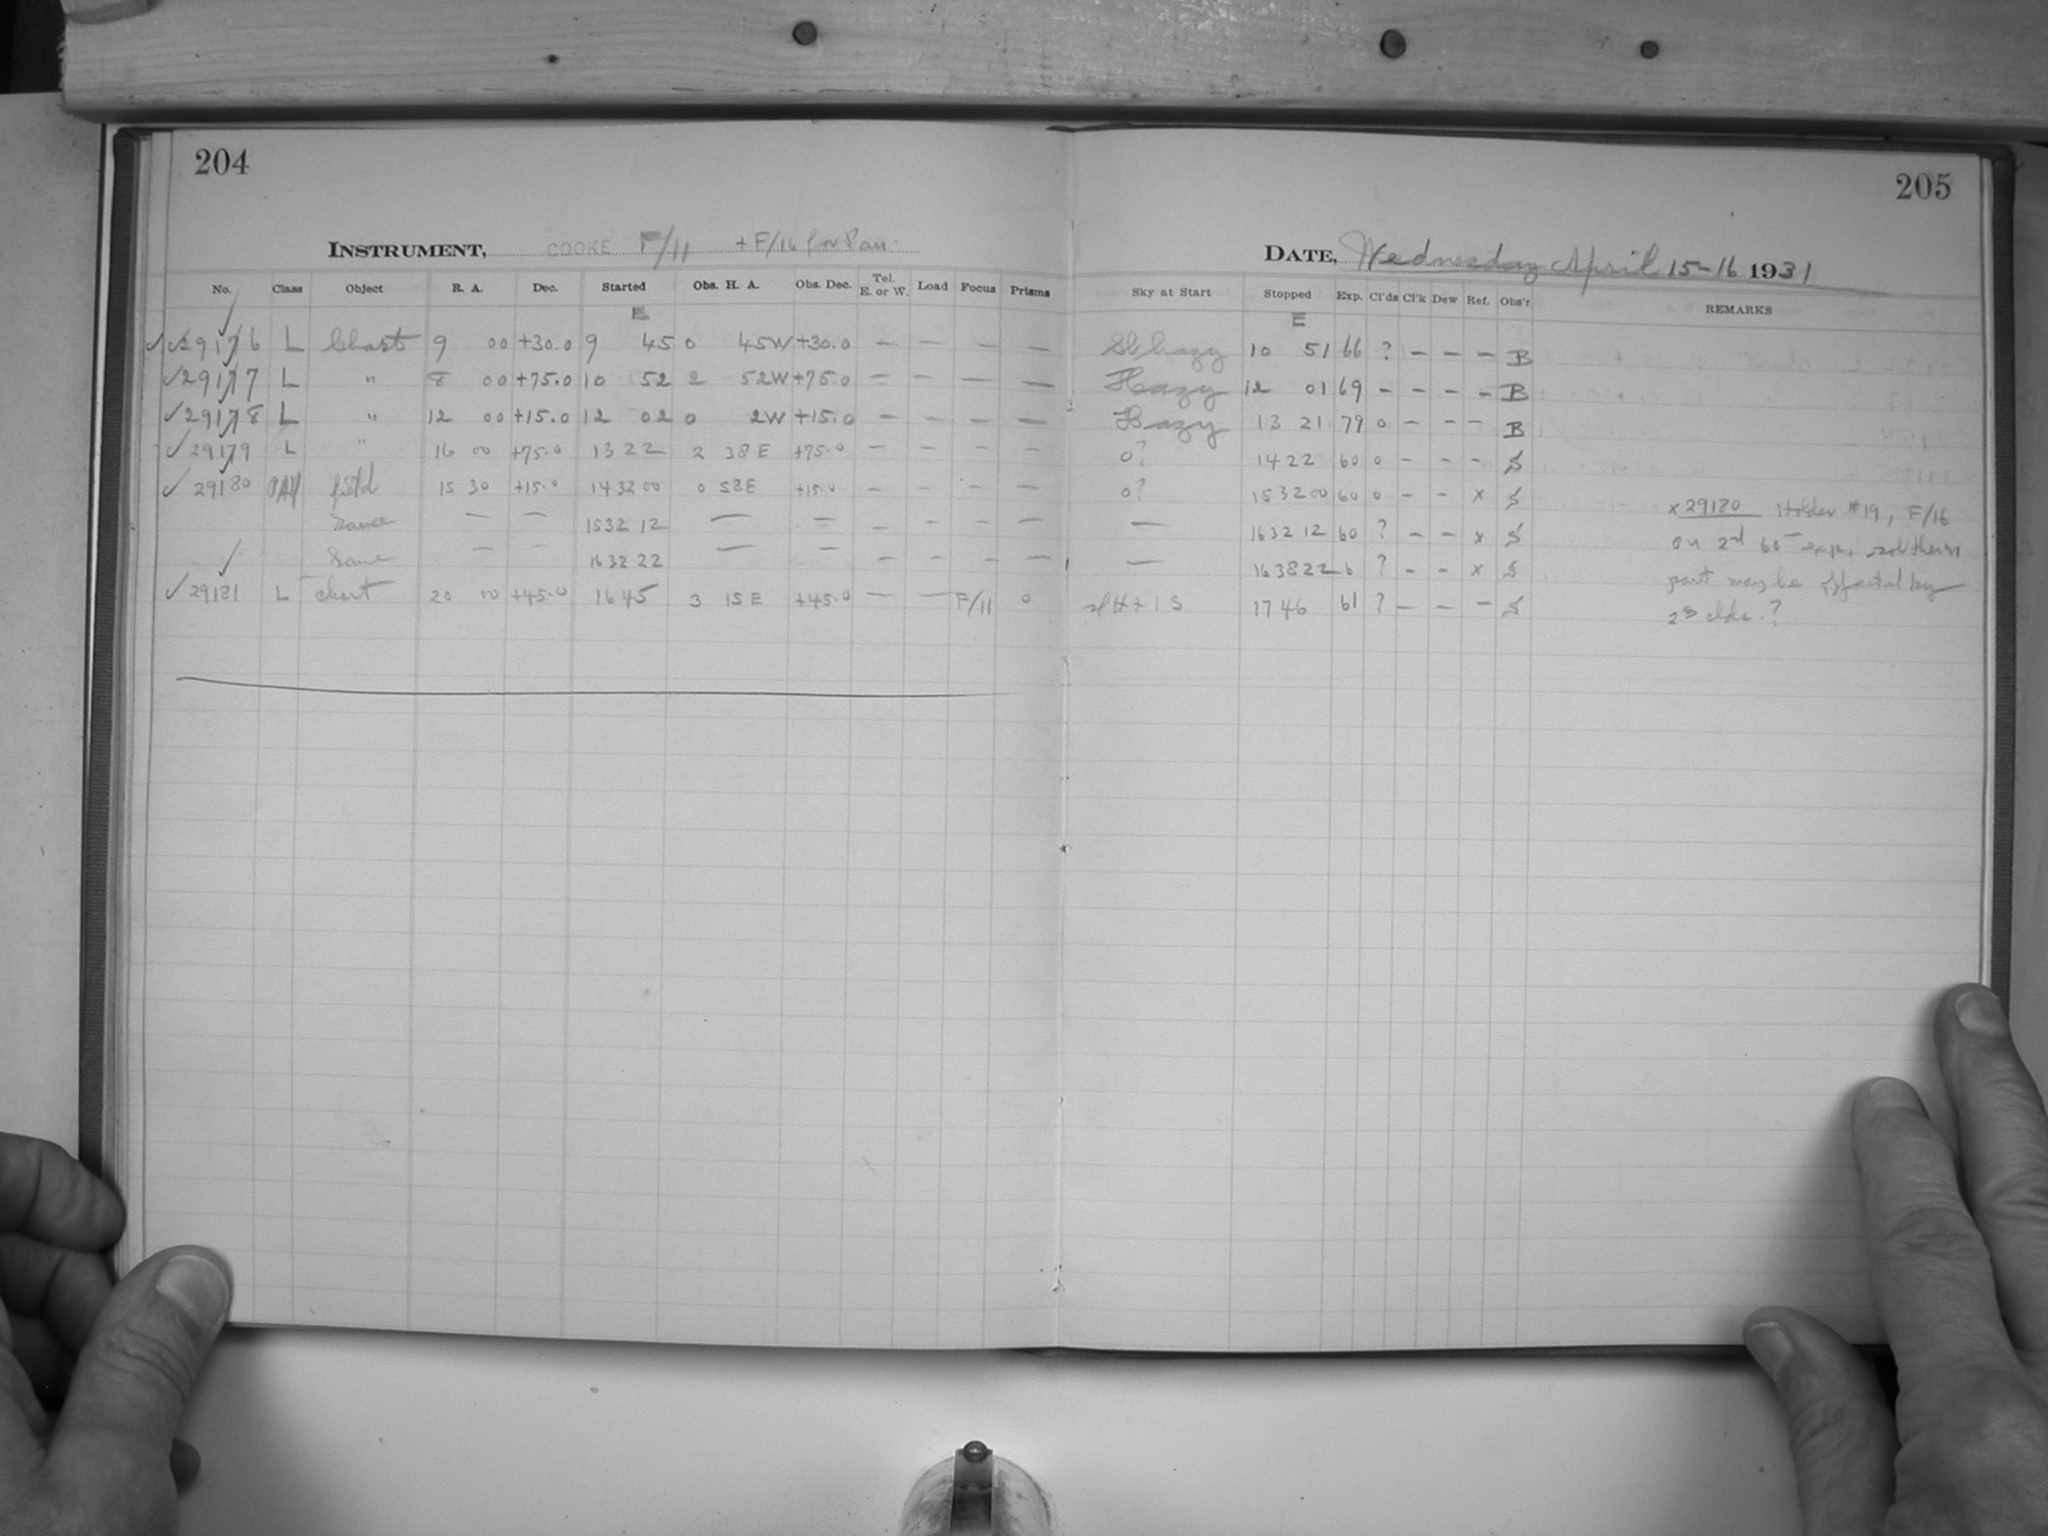 204
205
INSTRUMENT, COOKE F/11 + F/16 for Pan.
DATE, Wednesday April 15-16 1931
No. Class Object R. A. Dec. Started Obs. H. A. Obs. Dec. Tel. E. or W. Load Focus Prisms Sky at Start Stopped Exp. Cl'ds Cl'k Dew Ref. Obs'r REMARKS
E E
29176 L Chart 9 00 +30.0 9 45 0 45W +30.0 — — — — Sl hazy 10 51 66 ? — — — B
29177 L " 8 00 +75.0 10 52 2 52W +75.0 — — — — Hazy 12 01 69 — — — — B
29178 L " 12 00 +15.0 12 02 0 2W +15.0 — — — — Hazy 13 21 79 0 — — — B
29179 L " 16 00 +75.0 13 22 2 38 E +75.0 — — — — 0? 14 22 60 0 — — — S
29180 PAN field 15 30 +15.0 14 32 00 0 58E +15.0 — — — — 0? 15 32 00 60 0 — — x S x 29180 Holder #19, F/16
Same — — 15 32 12 — — — — — — — 16 32 12 60 ? — — x S on 2nd 60 exp. southern
Same — — 16 32 22 — — — — — — — 16 38 22 6 ? — — x S part may be affected by
29181 L chart 20 00 +45.0 16 45 3 15 E +45.0 — — F/11 0 17 46 61 ? — — — S clds.?